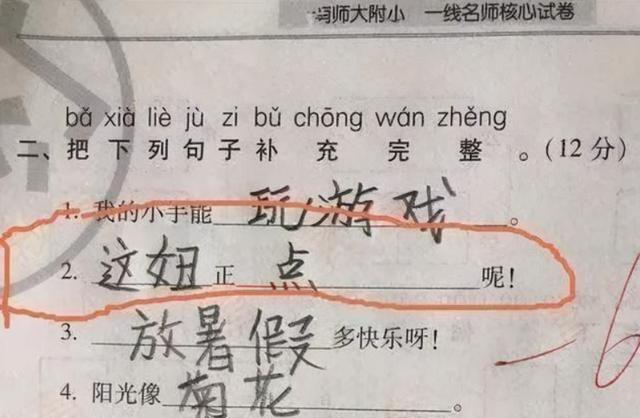 师大附小 一线名师核心试卷
bǎ xià liè jù zi bǔ chōng wán zhěng
二、把下列句子补充完整。(12分)
1. 我的小手能玩游戏。
2. 这妞正点呢!
3. 放暑假多快乐呀!
-6
4. 阳光像菊花。